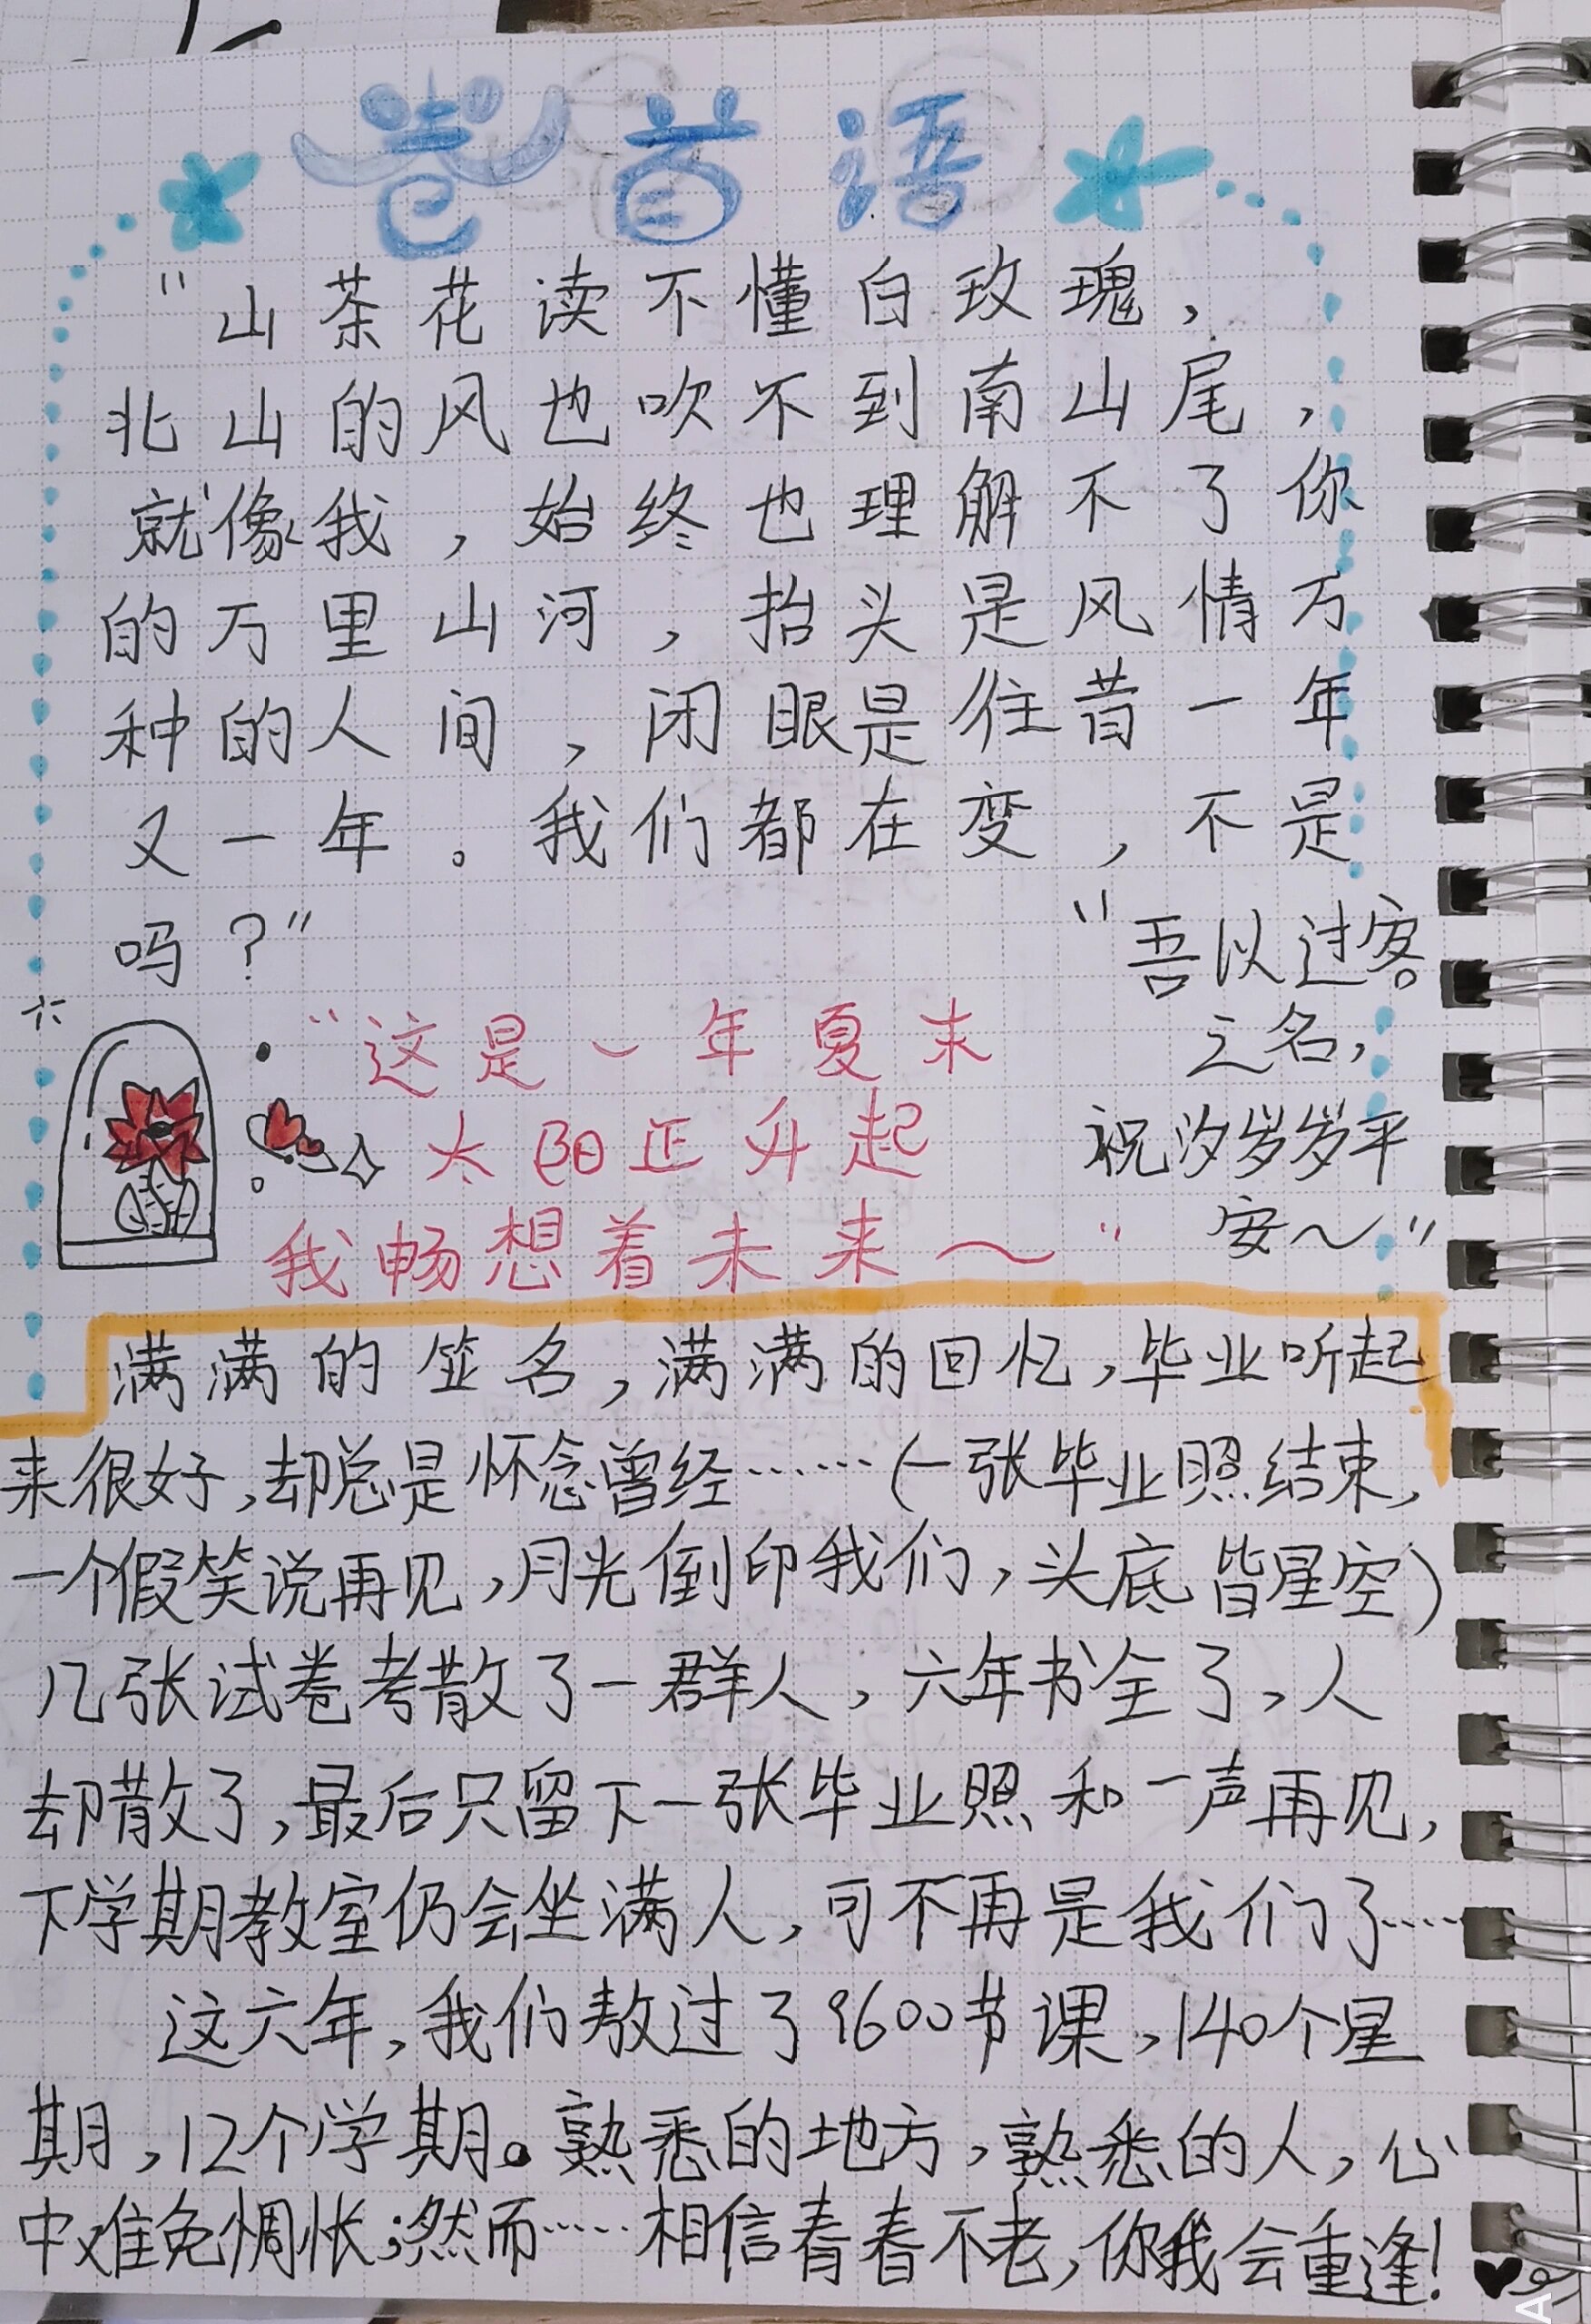 卷首语
“山茶花读不懂白玫瑰，
北山的风也吹不到南山尾，
就像我，始终也理解不了你
的万里山河，抬头是风情万
种的人间，闭眼是往昔一年
又一年。我们都在变，不是
吗？”
“吾以过客
之名，
祝汐岁岁平
安～”
“这是一年夏末
太阳正升起
我畅想着未来～”
满满的签名，满满的回忆，毕业听起
来很好，却总是怀念曾经……（一张毕业照结束，
一个假笑说再见，月光倒印我们，头底皆星空）
几张试卷考散了一群人，六年书全了，人
却散了，最后只留下一张毕业照和一声再见，
下学期教室仍会坐满人，可不再是我们了……
这六年，我们敖过了9600节课，140个星
期，12个学期。熟悉的地方，熟悉的人，心
中难免惆怅；然而……相信青春不老，你我会重逢！